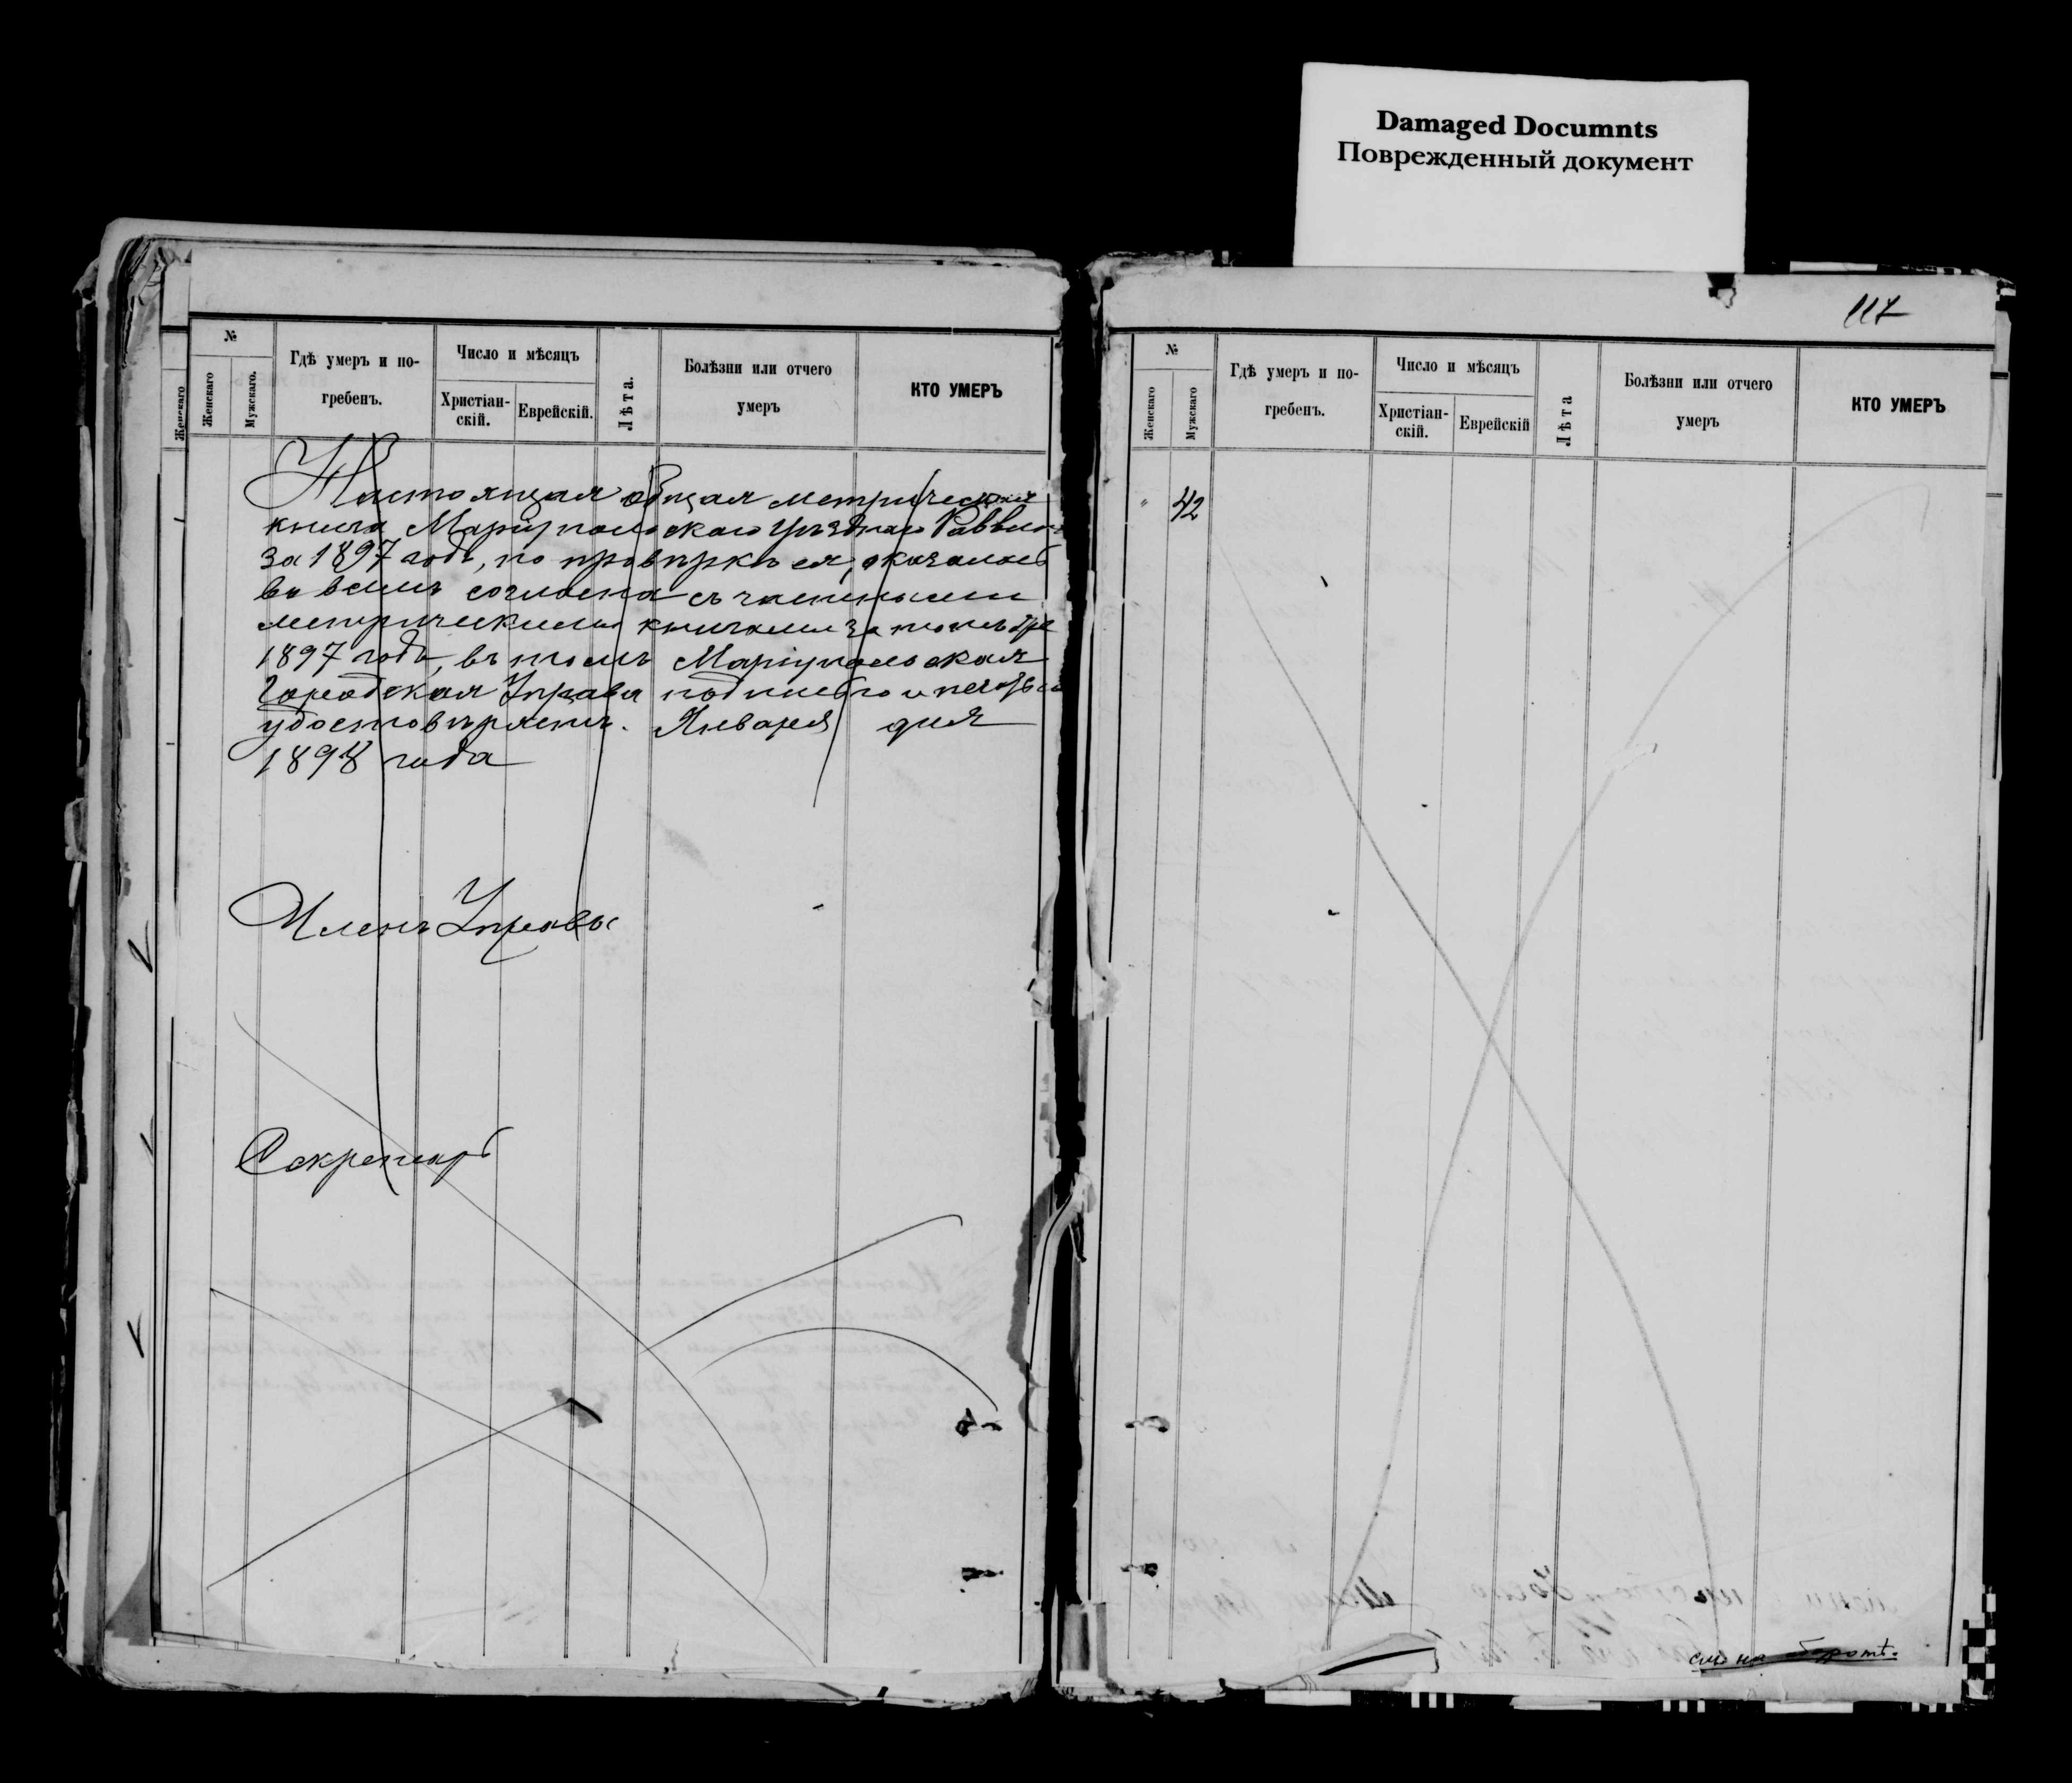 Damaged Documnts
Поврежденный документ
117
№
Женскаго
Женскаго
Мужскаго.
Гдѣ умеръ и по-
гребенъ.
Число и мѣсяцъ
Христіан-
скій.
Еврейскій.
Лѣта.
Болѣзни или отчего
умеръ
КТО УМЕРЪ
Настоящая общая метрическая
книга Маріупольскаго Уѣзднаго
за 1897 годъ, по провѣркѣ ея, оказалась
во всемъ согласна съ частными
метрическими книгами за тотъ же
1897 годъ, въ томъ Маріупольская
Городская Управа подписью и печатью
удостовѣряетъ. Января дня
1898 года
Членъ Управы
Секретарь
№
Женскаго
Мужскаго
Гдѣ умеръ и по-
гребенъ.
Число и мѣсяцъ
Христіан-
скій.
Еврейскій
Лѣта
Болѣзни или отчего
умеръ
КТО УМЕРЪ
" 42
см. на оборотѣ.